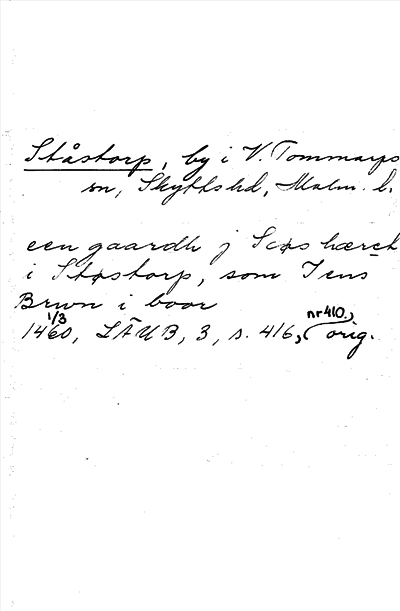 Ståstorp, by i V. Tommarps
sn, Skytts hd, Malm. l.
een gaardh j Scøs hæreth
i Støstorp, som Jens
Brwn i boor
1460, 1/3 LÄUB, 3, s. 416, nr 410., orig.